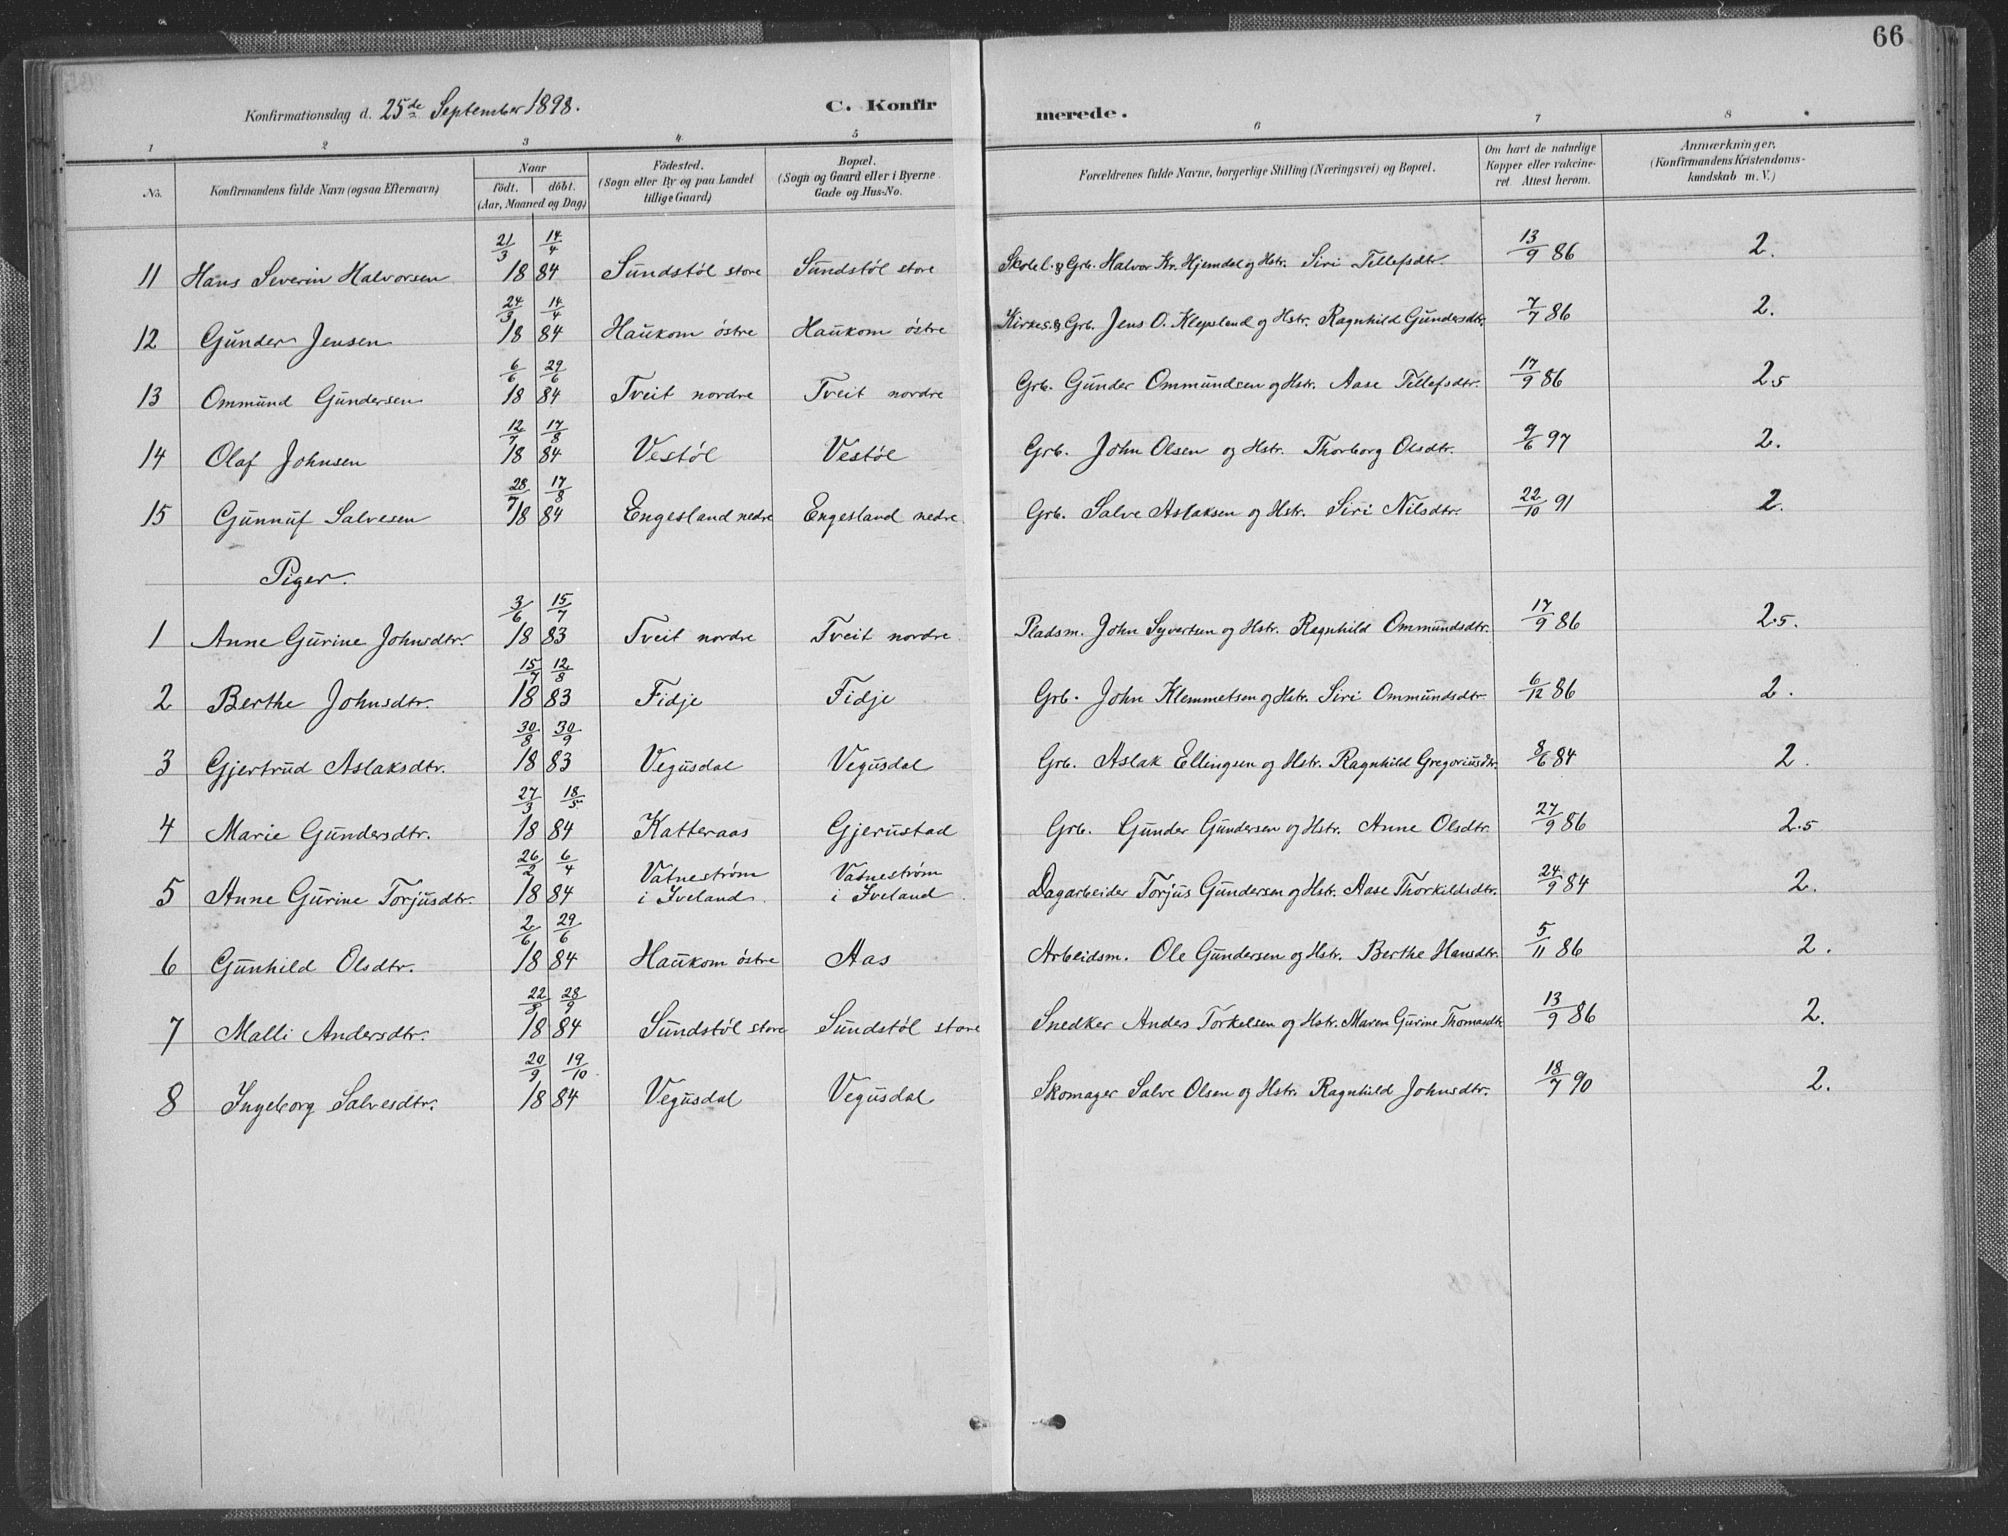 66
Konfirmationsdag d. 25de September 1898. C. Konfirmerede.
1 2 3 4 5 6 7 8
No. Konfirmandens fulde Navn (ogsaa Efternavn) Naar födt. döbt. (Aar, Maaned og Dag) Födested. (Sogn eller By og paa Landet tillige Gaard) Bopæl. (Sogn og Gaard eller i Byerne Gade og Hus-No. Forældrenes fulde Navne, borgerlige Stilling (Næringsvei) og Bopæl. Om havt de naturlige Kopper eller vakcineret. Attest herom. Anmærkninger, (Konfirmandens Kristendomskundskab m. V.)
11 Hans Severin Halvorsen 21/3 1884 14/4 Sundstöl store Sundstöl store Skolel. & Grb. Halvor Kr. Hjemdal og Hstr. Siri Tellefsdtr. 13/9 86 2.
12 Gunder Jensen 24/3 1884 14/4 Haukom östre Haukom östre Kirkes. & Grb. Jens O. Klepsland og Hstr. Ragnhild Gundersdtr. 7/7 86 2.
13 Ommund Gundersen 6/6 1884 29/6 Tveit nordre Tveit nordre Grb. Gunder Ommundsen og Hstr. Aase Tellefsdtr. 17/9 86 2.5
14 Olaf Johnsen 12/7 1884 17/8 Vestöl Vestöl Grb. John Olsen og Hstr. Thorborg Olsdtr. 9/6 97 2.
15 Gunnuf Salvesen 28/7 1884 17/8 Engesland nedre Engesland nedre. Grb. Salve Aslaksen og Hstr. Siri Nilsdtr. 22/10 91 2.
Piger.
1 Anne Gurine Johnsdtr. 3/6 1883 15/7 Tveit nordre Tveit nordre. Pladsm. John Syvertsen og Hstr. Ragnhild Ommundsdtr. 17/9 86 2.5.
2 Berthe Johnsdtr. 15/7 1883 12/8 Fidje Fidje Grb. John Klemmetsen og Hstr. Siri Ommundsdtr. 6/12 86 2.
3 Gjertrud Aslaksdtr. 30/8 1883 30/9 Vegusdal Vegusdal Grb. Aslak Ellingsen og Hstr. Ragnhild Gregoriusdtr. 8/6 84 2.
4 Marie Gundersdtr. 27/3 1884 18/5 Katteraas Gjerustad Grb. Gunder Gundersen og Hstr. Anne Olsdtr. 27/9 86 2.5
5 Anne Gurine Torjusdtr. 26/2 1884 6/4 Vatneström i Iveland. Vatneström i Iveland. Dagarbeider Torjus Gundersen og Hstr. Aase Thorkildsdtr. 24/9 84 2.
6 Gunhild Olsdtr. 2/6 1884 29/6 Haukom östre Aas Arbeidsm. Ole Gundersen og Hstr. Berthe Hansdtr. 5/11 86 2.
7 Malli Andersdtr. 22/8 1884 28/9 Sundstöl store Sundstöl store Snedker Anders Torkelsen og Hstr. Maren Gurine Thomasdtr. 13/9 86 2.
8 Ingeborg Salvesdtr. 20/9 1884 19/10 Vegusdal Vegusdal Skomager Salve Olsen og Hstr. Ragnhild Johnsdtr. 18/7 90 2.